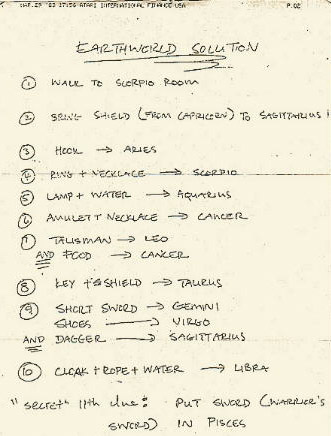 '83 17:56 ATARI INTERNATIONAL FINANCE USA P.02
EARTHWORLD SOLUTION
① WALK TO SCORPIO ROOM
② BRING SHIELD (FROM CAPRICORN) TO SAGITTARIUS!
③ HOOK → ARIES
④ RING + NECKLACE → SCORPIO
⑤ LAMP + WATER → AQUARIUS
⑥ AMULET + NECKLACE → CANCER
⑦ TALISMAN → LEO
AND FOOD → CANCER
⑧ KEY + SHIELD → TAURUS
⑨ SHORT SWORD → GEMINI
SHOES → VIRGO
AND DAGGER → SAGITTARIUS
⑩ CLOAK + ROPE + WATER → LIBRA
"SECRET" 11th clue: PUT SWORD (WARRIOR'S
SWORD) IN PISCES